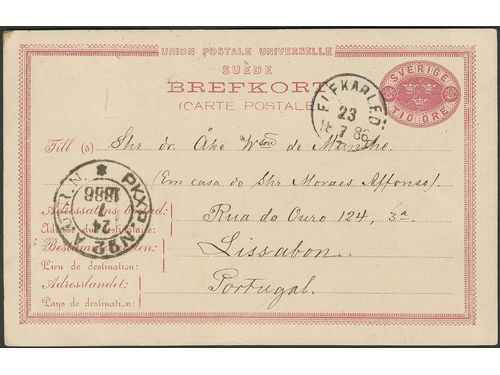 UNION POSTALE UNIVERSELLE
SUÈDE
BREFKORT
(CARTE POSTALE)
SVERIGE
TIO ÖRE
ELFKARLEÖ
23
7 86
Till (a) Shr dr. Åke Wson de
(Em casa do Shr Moraes Affonso).
Adressatens bostad: Rua do Ouro 124, 3a
Adresse du destinataire:
Bestämmelseorten: Lissabon.
Lieu de destination:
Adresslandet: Portugal.
Pays de destination:
PKXP. Nr 2 A. UPP. N.
24
7
1886